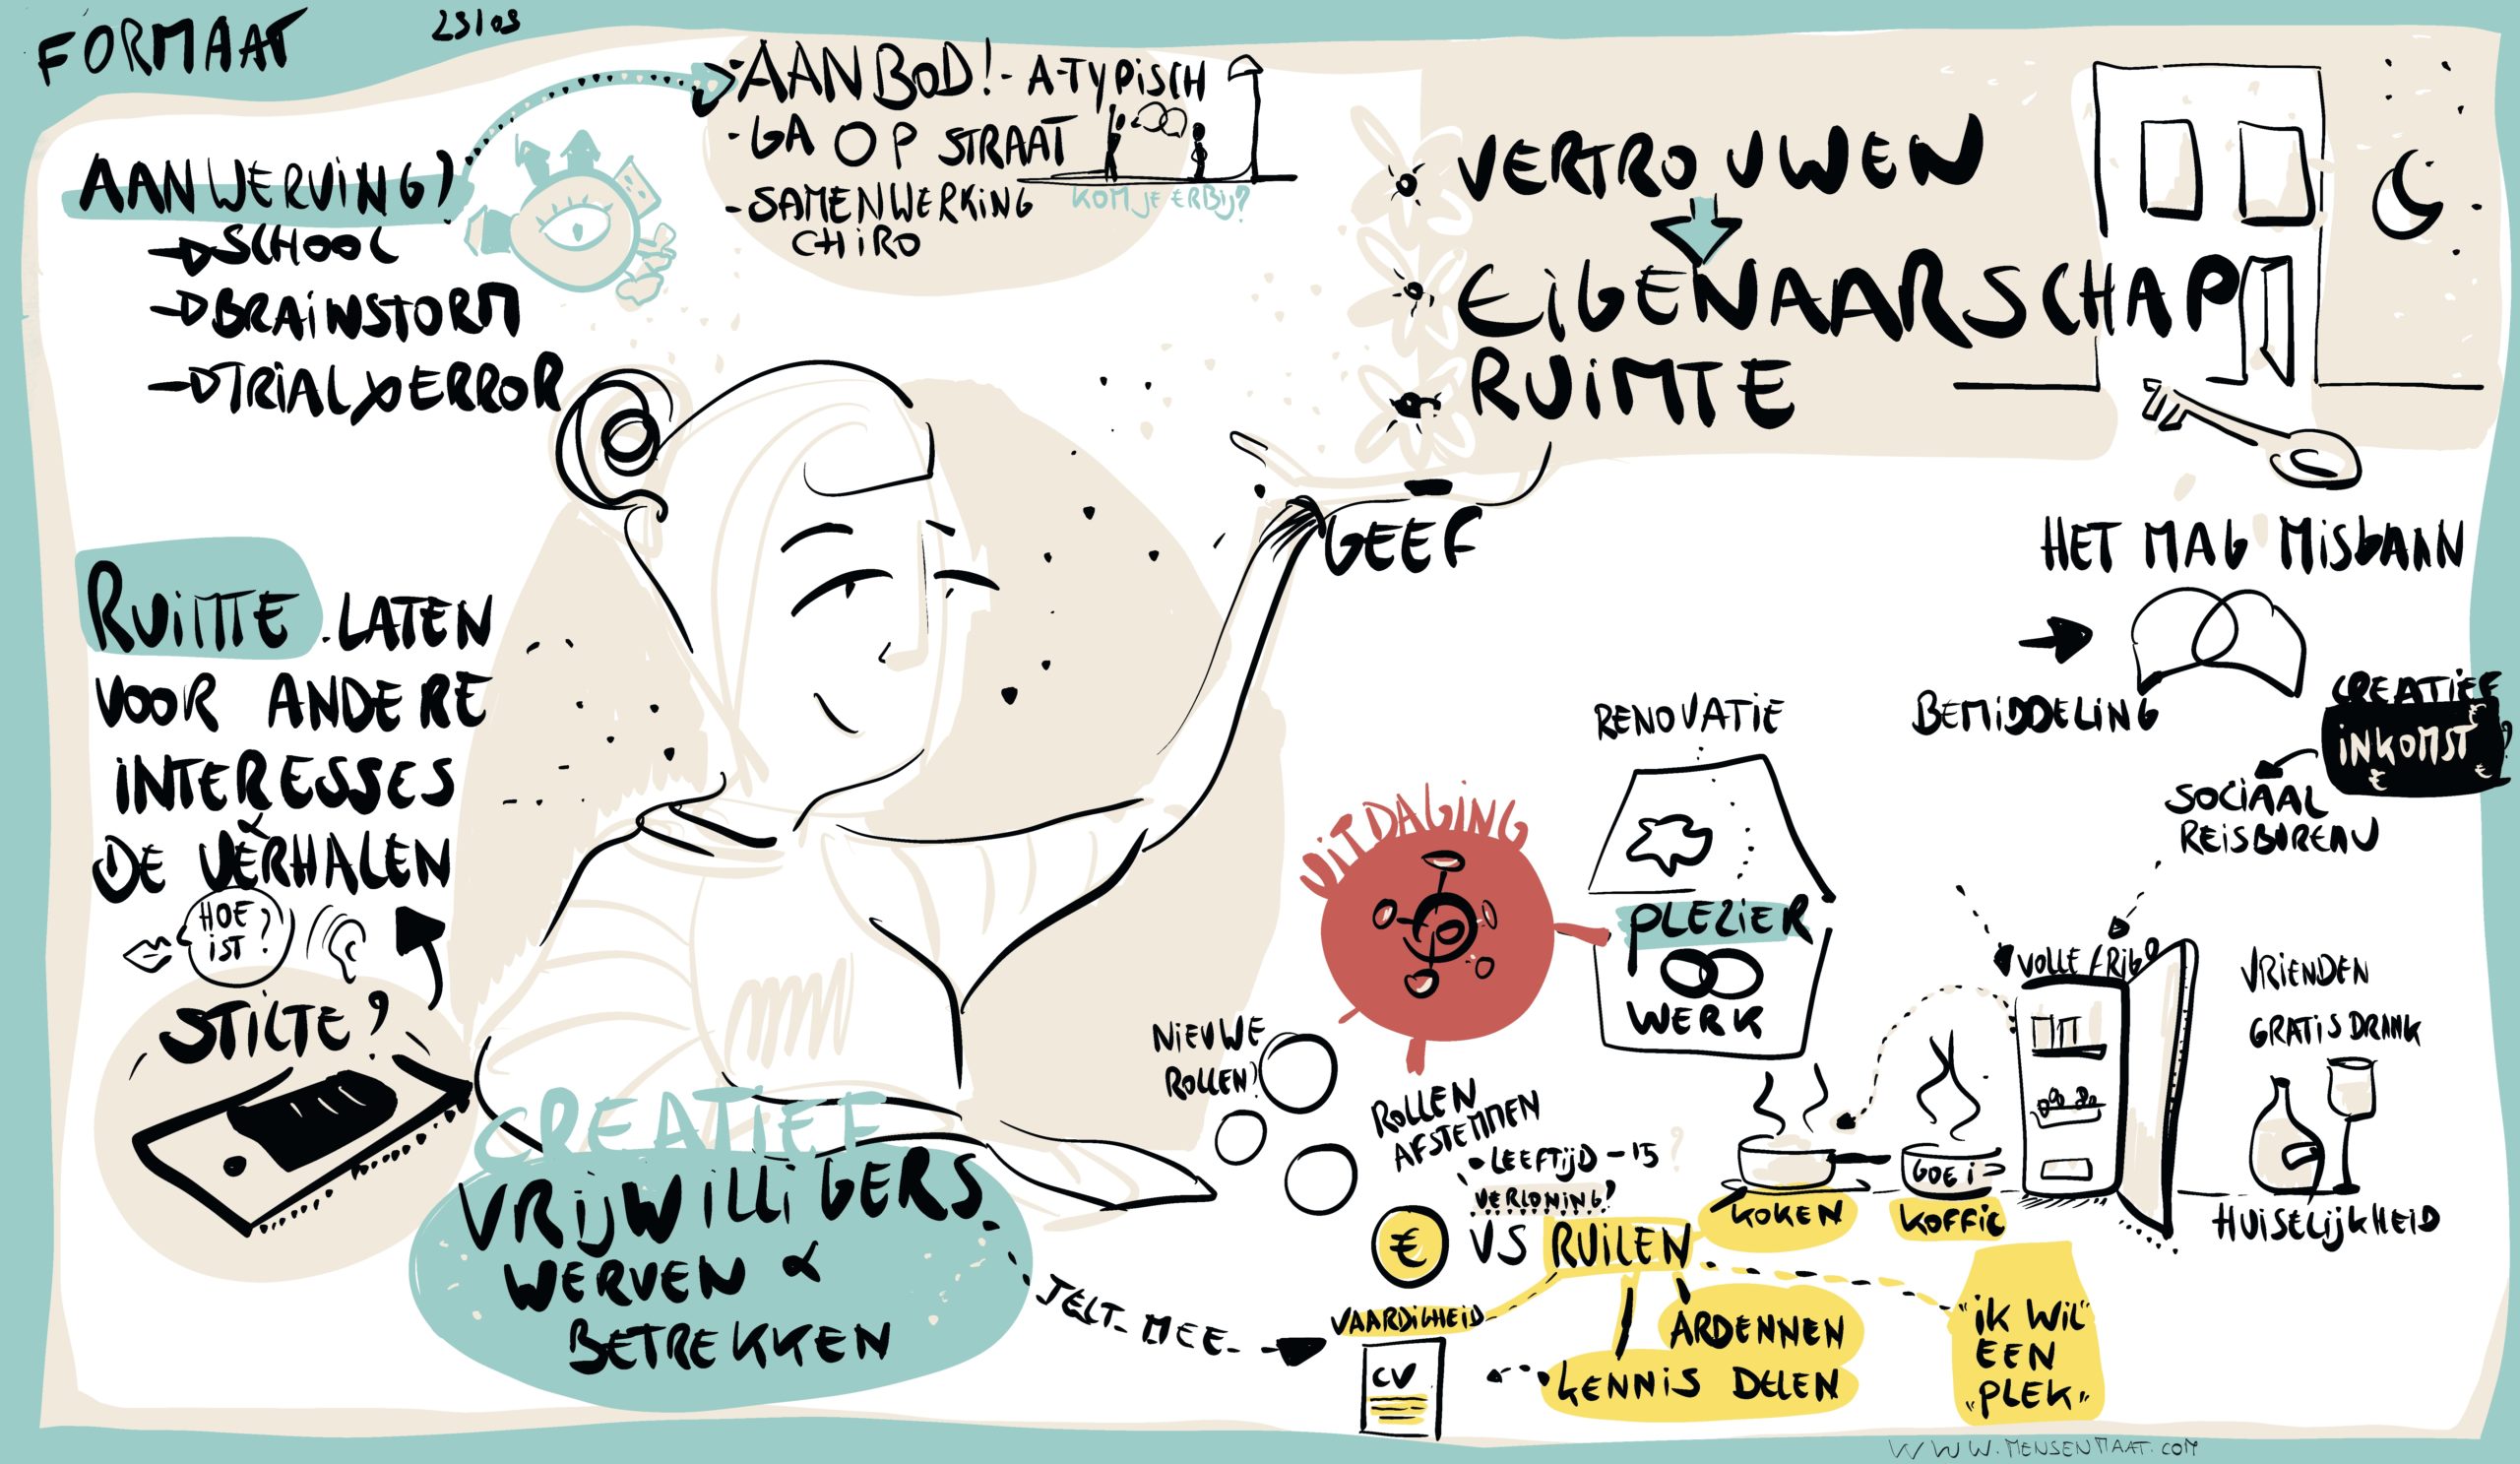 FORMAAT
AANWERVING?
SCHOOL
BRAINSTORM
TRIAL & ERROR
- AANBOD! - A-TYPISCH
- GA OP STRAAT
- SAMENWERKING
CHIRO
KOM JE ERBIJ?
VERTROUWEN
EIGENAARSCHAP
RUIMTE
GEEF
HET MAG MISGAAN
BEMIDDELING
CREATIEF
INKOMST
€
€
€
SOCIAAL
REISBUREAU
RUIMTE LATEN
VOOR ANDERE
INTERESSES
&
DE VERHALEN
HOE
IST?
STILTE?
CREATIEF
VRIJWILLIGERS
WERVEN &
BETREKKEN
TELT MEE
RENOVATIE
UITDAGING
PLEZIER
WERK
NIEUWE
ROLLEN?
ROLLEN
AFSTEMMEN
• LEEFTIJD -15?
VERLONING?
€ VS RUILEN
VAARDIGHEID
CV
ARDENNEN
KENNIS DELEN
KOKEN
GOEI
KOFFIE
VOLLE FRIGO
VRIENDEN
GRATIS DRANK
HUISELIJKHEID
"IK WIL"
EEN
"PLEK"
WWW.MENSENMAAT.COM